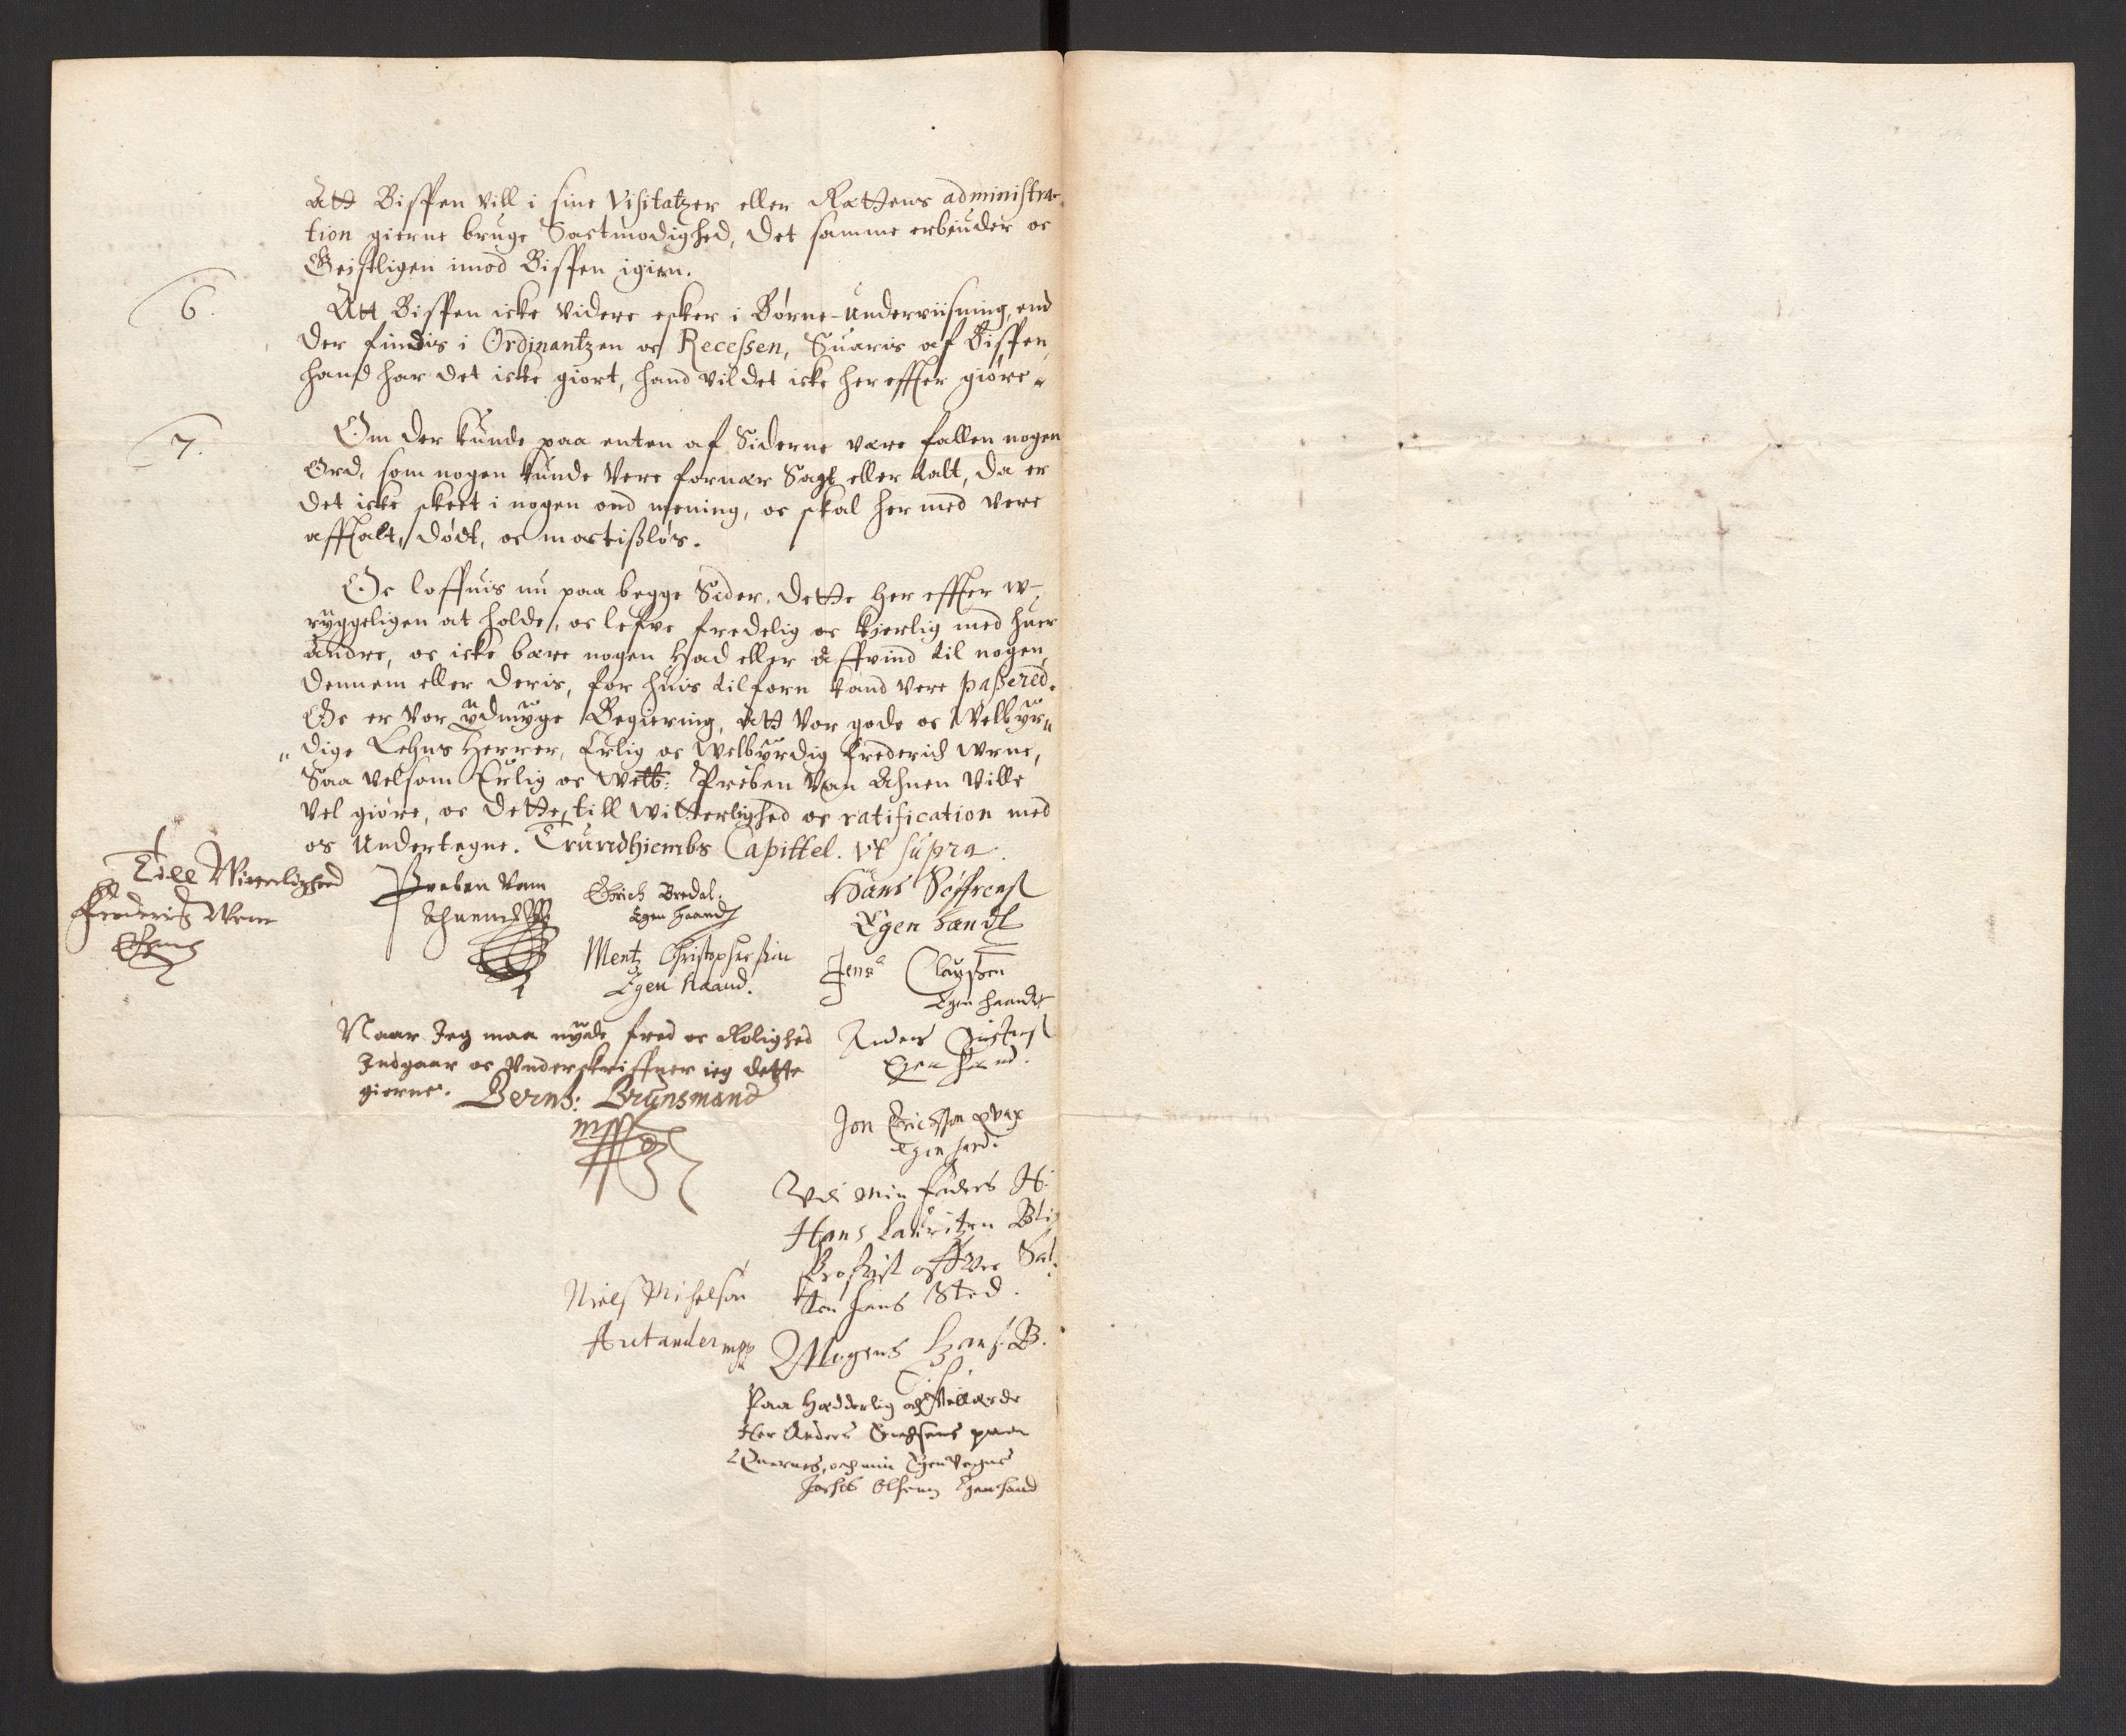 Att Bispen vill i sine Visitatzer eller Rættens administra-
tion gierne bruge Sactmodighed, det samme erbiuder oc
Geistligen imod Bispen igien.
6. Att Bispen icke videre esker i Børne-underviisning, end
der findis i Ordinantzen oc Recessen, Suaris af Bispen,
hand har det icke giort, hand vil det icke her effter giøre.
7. Om der kunde paa enten af Siderne være fallen nogen
Ord, som nogen kunde Vere fornær Sagt eller talt, da er
det icke skeet i nogen ond mening, oc skal hermed vere
afftalt, dødt, oc mactisløs.
Oc loffuis nu paa begge Sider, dette her effter w-
ryggeligen at holde, oc lefve fredelig oc kierlig med huer
andre, oc icke bære nogen Had eller Affvind til nogen,
dennem eller deris, for huis tilforn kand vere passered.
Oc er vor ydmyge Begiering, att vor gode oc Welbyr-
dige Lehns Herrer, Erlig oc Welbyrdig Frederich Wrne,
Saa velsom Erlig oc Welb: Preben Van Ahnen ville
vel giøre, oc dette till Witterlighed oc ratification med
os Undertegne. Trundhiembs Capittel. vt supra.
Till Witterlighed
Frederich Wrne
Egen
Preben Vonn
Ahnen
Erich Bredal.
Egen Haand
Mentz Christophersøn
Egen Haand.
Hans Søffrens
Egen Hand
Jens Claussen
Egen haand
Naar Jeg maa nyde fred oc Rolighed
Indgaar oc Underskriffuer ieg dette
gierne. Bernh: Brunsmand
mpp
Anders
Egen Hand.
Jon Erichsøn
Egen hand.
Udi Min Faders H:
Hans Lauritzen Bli
Profvist offver Sal-
ten hans Sted.
Mogens Hans. B.
Niels Michelsøn
Autander mpp
Paa Hæderlig och Vellærde
Her Anders paa
och min Egen Vegne
Jacob Olsen Egen hand